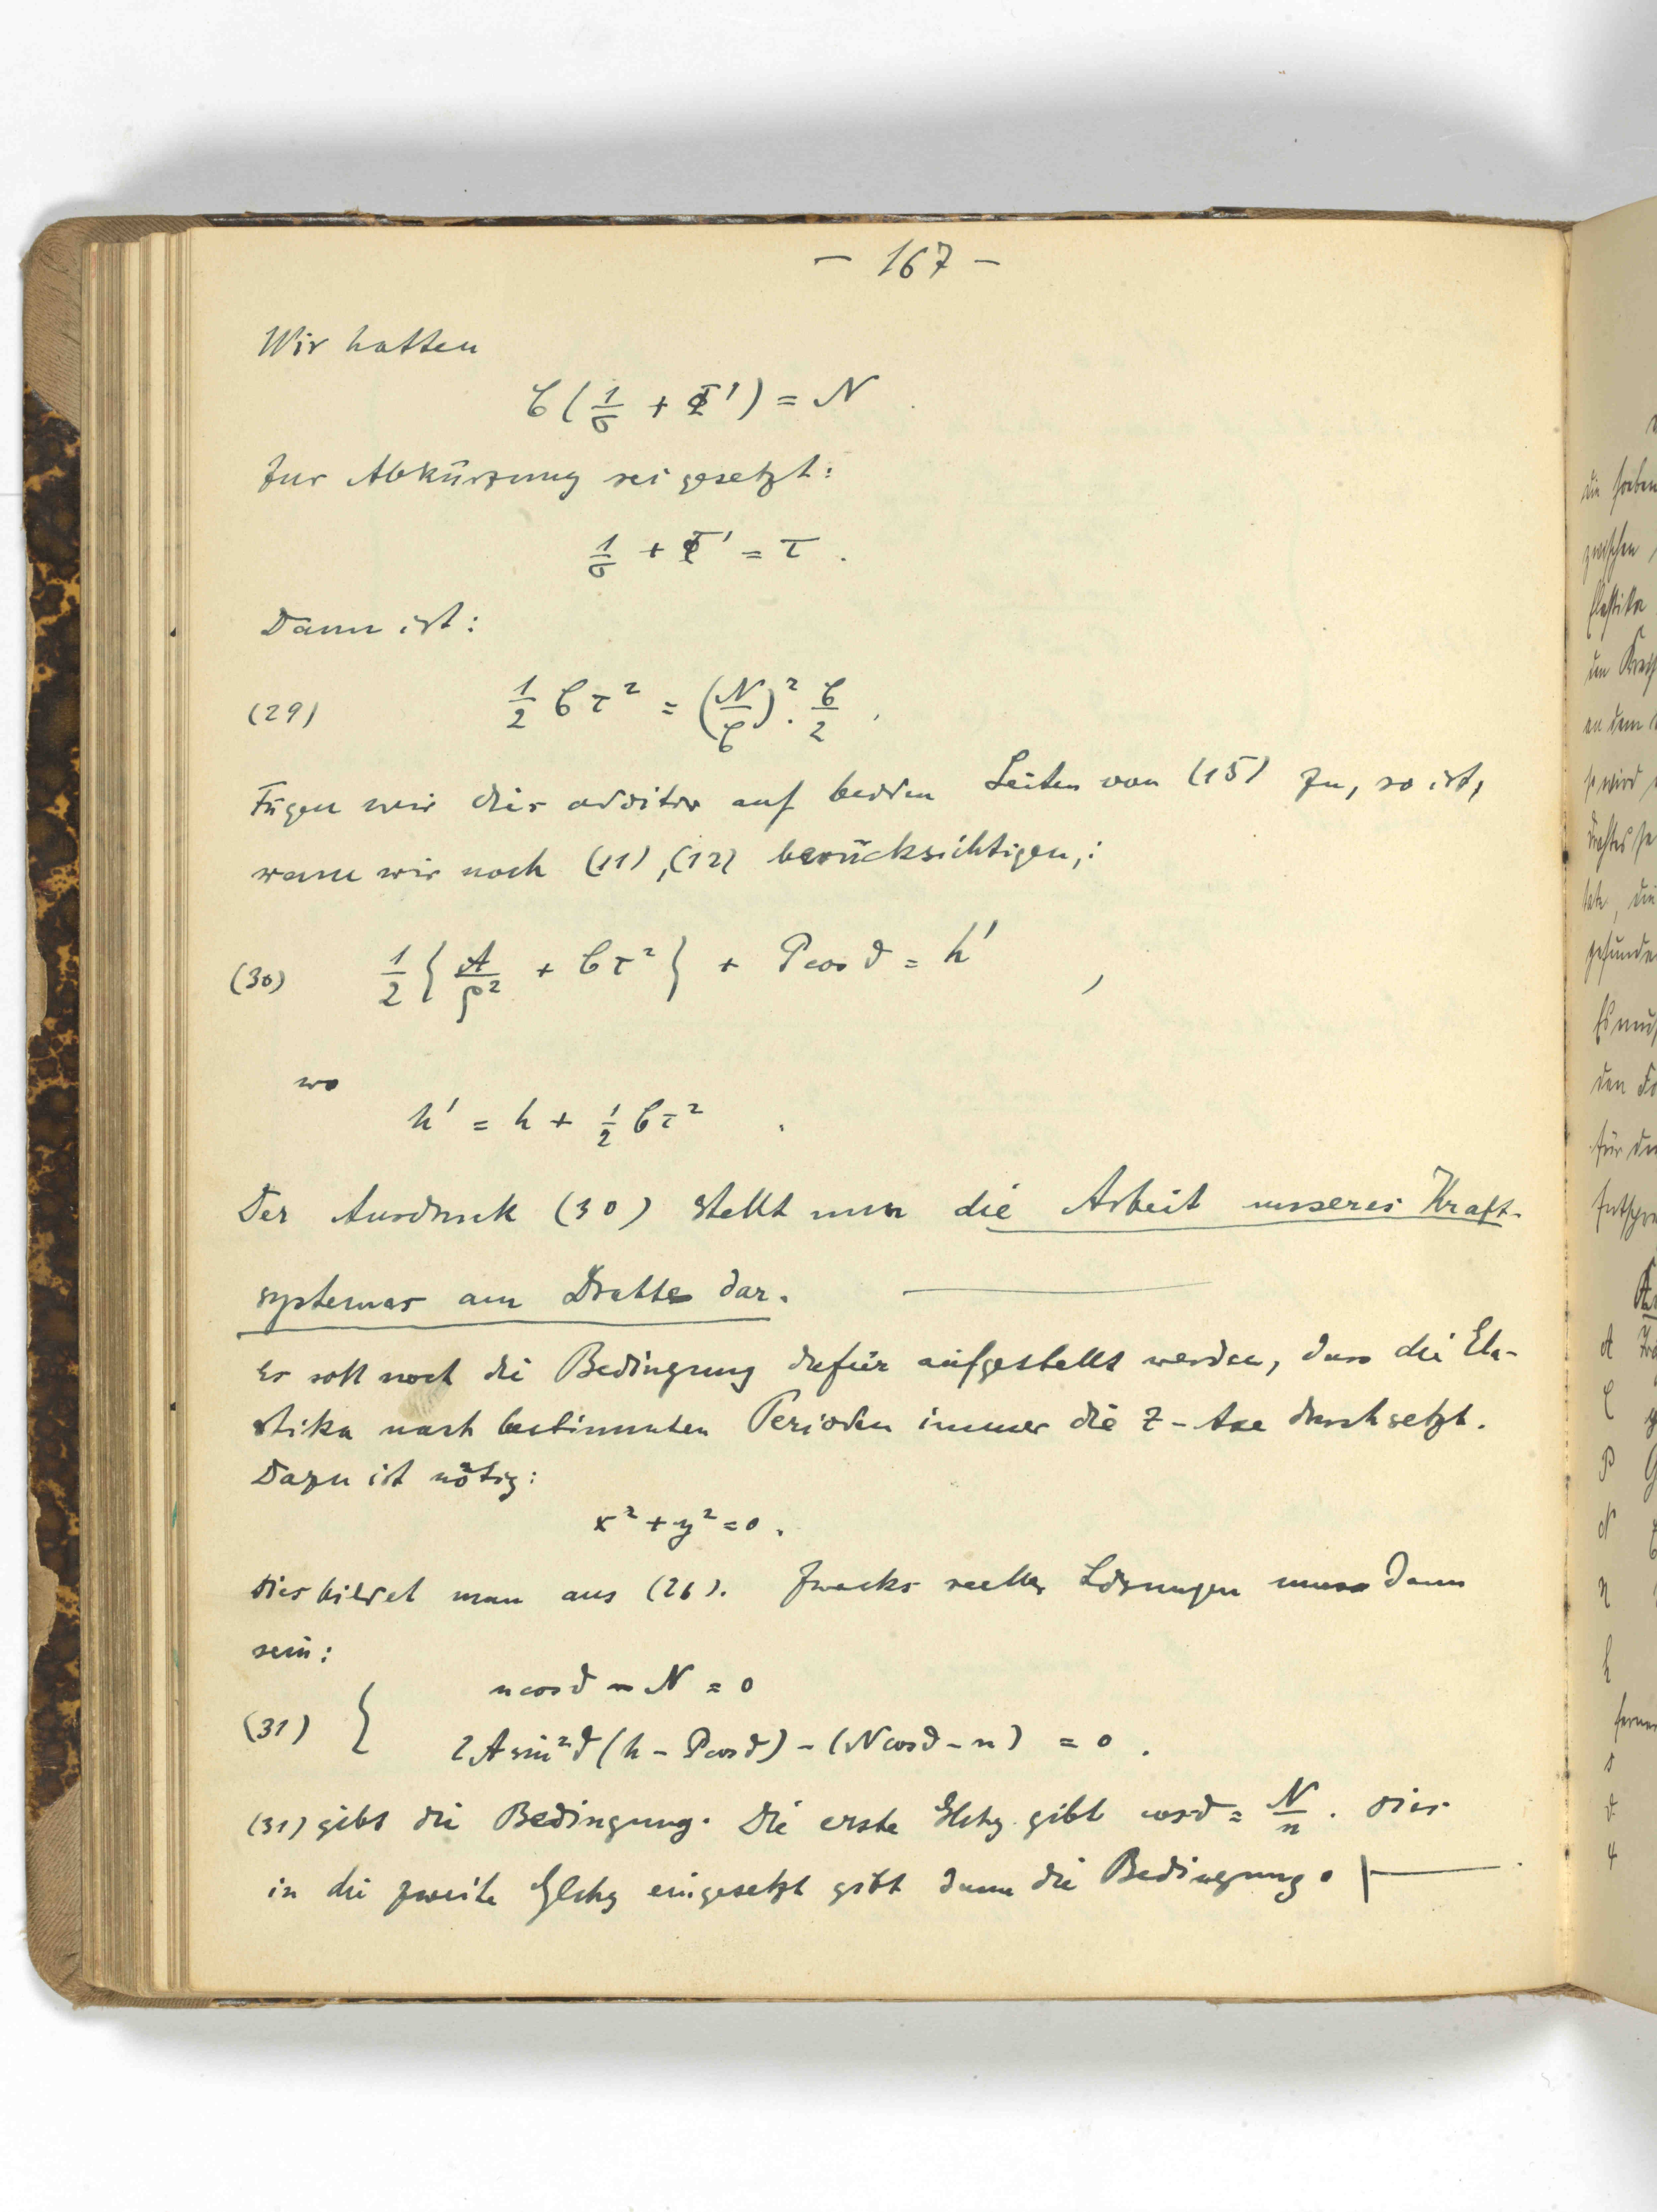 – 167 –
Wir hatten
C(1/σ + Φ') = N
Zur Abkürzung sei gesetzt:
1/σ + Φ' = τ.
Dann ist:
(29) 1/2 Cτ² = (N/C)² · C/2,
Fügen wir dies additiv auf beiden Seiten von (15) zu, so ist,
wenn wir noch (11), (12) berücksichtigen,:
(30) 1/2 { A/ρ² + Cτ² } + P cos ϑ = h',
wo
h' = h + 1/2 Cτ².
Der Ausdruck (30) stellt nun die Arbeit unseres Kraft-
systemes am Drahte dar.
Es soll noch die Bedingung dafür aufgestellt werden, dass die Ela-
stika nach bestimmten Perioden immer die Z-Axe durchsetzt.
Dazu ist nötig:
x² + y² = 0.
Dies bildet man aus (26). Zwecks reeller Lösungen muss dann
sein:
n cos ϑ – N = 0
(31) { 2A sin²ϑ (h – P cos ϑ) – (N cos ϑ – n) = 0.
(31) gibt die Bedingung. Die erste Glchg. gibt cos ϑ = N/n. Dies
in die zweite Glchg eingesetzt gibt dann die Bedingung.